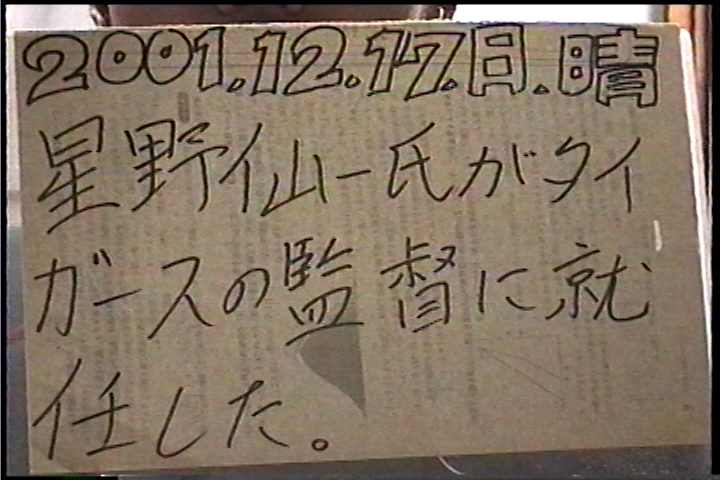 2001.12.17.日.晴
星野仙一氏がタイ
ガースの監督に就
任した。